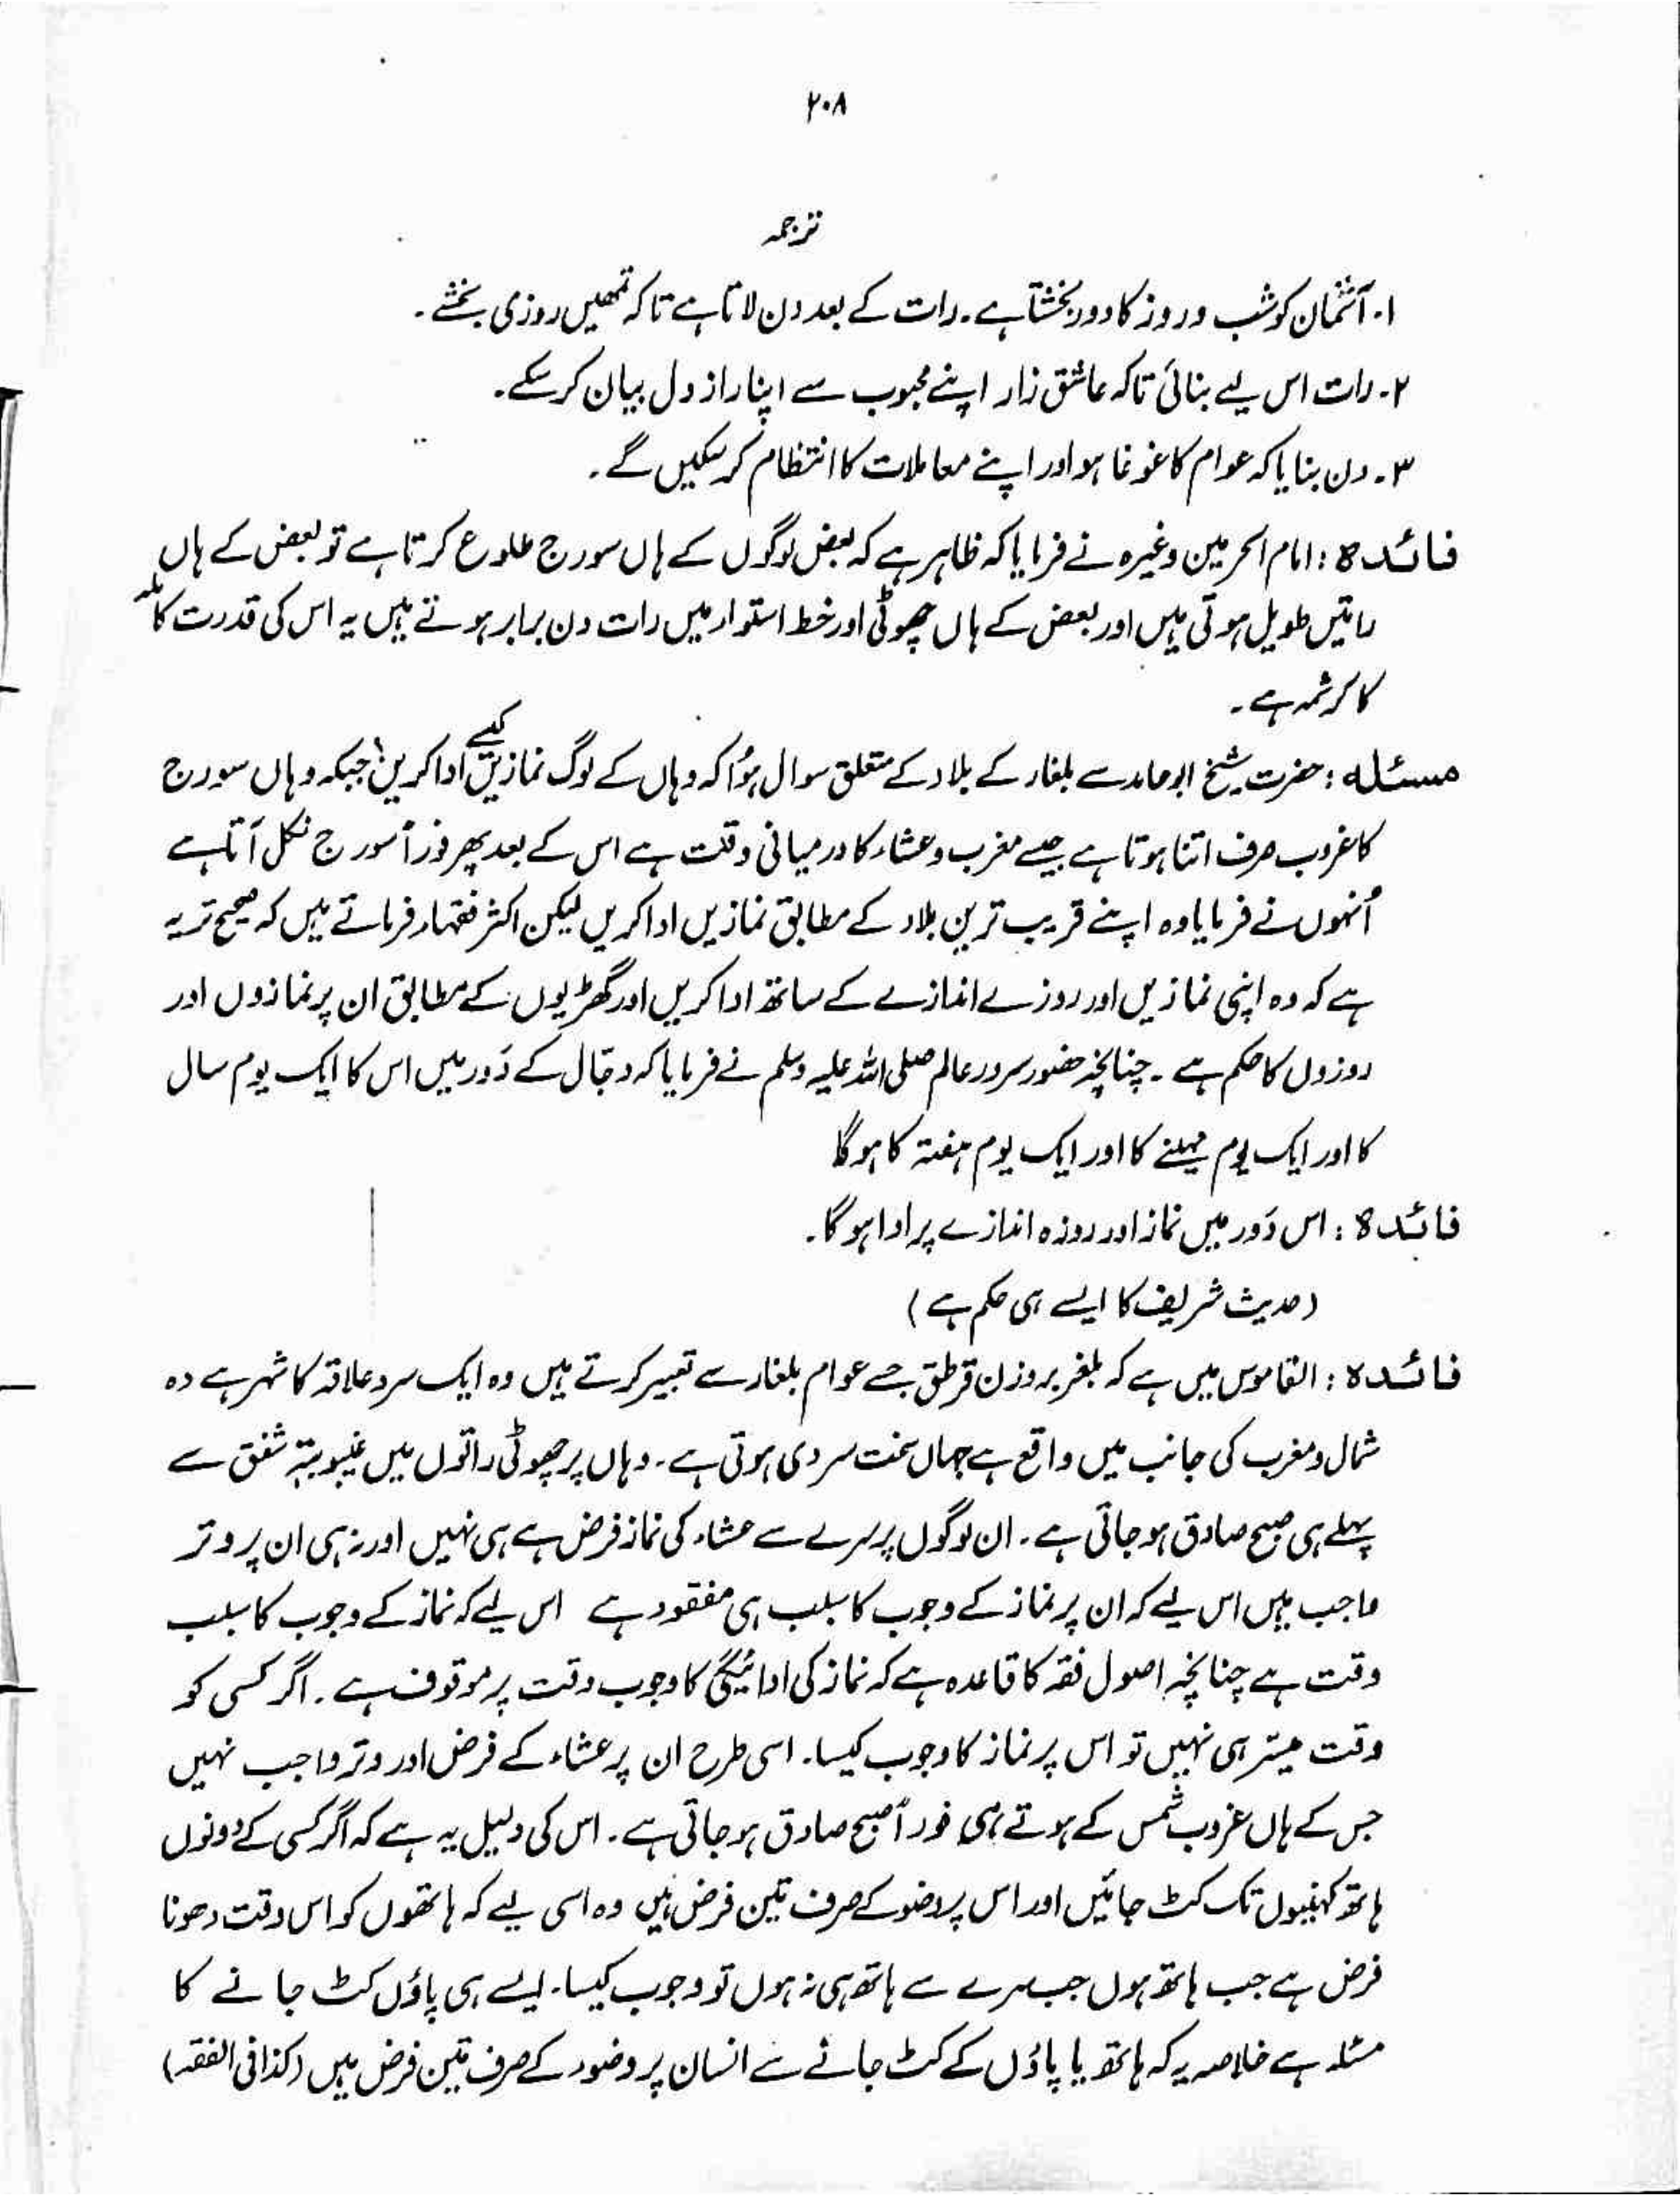 ۲۰۸
ترجمہ
۱۔ آسمان کو شب و روز کا دور بخشتا ہے۔ رات کے بعد دن لاتا ہے تاکہ تمھیں روزی بخشے۔
۲۔ رات اس لیے بنائی تاکہ عاشق زار اپنے محبوب سے اپنا راز دل بیان کر سکے۔
۳۔ دن بنایا کہ عوام کا غوغا ہو اور اپنے معاملات کا انتظام کر سکیں گے۔
فائدہ : امام الحرمین وغیرہ نے فرمایا کہ ظاہر ہے کہ بعض لوگوں کے ہاں سورج طلوع کرتا ہے تو بعض کے ہاں
راتیں طویل ہوتی ہیں اور بعض کے ہاں چھوٹی اور خط استواء میں رات دن برابر ہوتے ہیں یہ اس کی قدرت کاملہ
کا کرشمہ ہے۔
مسئلہ : حضرت شیخ ابو حامد سے بلغار کے بلاد کے متعلق سوال ہؤا کہ وہاں کے لوگ نمازیں کیسے ادا کریں جبکہ وہاں سورج
کا غروب صرف اتنا ہوتا ہے جیسے مغرب و عشاء کا درمیانی وقت ہے اس کے بعد پھر فوراً سورج نکل آتا ہے
اُنہوں نے فرمایا وہ اپنے قریب ترین بلاد کے مطابق نمازیں ادا کریں لیکن اکثر فقہاء فرماتے ہیں کہ صحیح تر یہ
ہے کہ وہ اپنی نمازیں اور روزے اندازے کے ساتھ ادا کریں اور گھڑیوں کے مطابق ان پر نمازوں اور
روزوں کا حکم ہے۔ چنانچہ حضور سرور عالم صلی اللہ علیہ وسلم نے فرمایا کہ دجّال کے دَور میں اس کا ایک یوم سال
کا اور ایک یوم مہینے کا اور ایک یوم ہفتہ کا ہو گا
فائدہ : اس دَور میں نماز اور روزہ اندازے پر ادا ہو گا۔
(حدیث شریف کا ایسے ہی حکم ہے)
فائدہ : القاموس میں ہے کہ بلغر بروزن قرطق جسے عوام بلغار سے تعبیر کرتے ہیں وہ ایک سرد علاقہ کا شہر ہے وہ
شمال و مغرب کی جانب میں واقع ہے جہاں سخت سردی ہوتی ہے۔ وہاں پر چھوٹی راتوں میں غیبوبۃ شفق سے
پہلے ہی صبح صادق ہو جاتی ہے۔ ان لوگوں پر سرے سے عشاء کی نماز فرض ہے ہی نہیں اور نہ ہی ان پر وتر
واجب ہیں اس لیے کہ ان پر نماز کے وجوب کا سبب ہی مفقود ہے اس لیے کہ نماز کے وجوب کا سبب
وقت ہے چنانچہ اصول فقہ کا قاعدہ ہے کہ نماز کی ادائیگی کا وجوب وقت پر موقوف ہے۔ اگر کسی کو
وقت میسّر ہی نہیں تو اس پر نماز کا وجوب کیسا۔ اسی طرح ان پر عشاء کے فرض اور وتر واجب نہیں
جس کے ہاں غروب شمس کے ہوتے ہی فوراً صبح صادق ہو جاتی ہے۔ اس کی دلیل یہ ہے کہ اگر کسی کے دونوں
ہاتھ کہنیوں تک کٹ جائیں اور اس پر وضو کے صرف تین فرض ہیں وہ اسی لیے کہ ہاتھوں کو اس وقت دھونا
فرض ہے جب ہاتھ ہوں جب سرے سے ہاتھ ہی نہ ہوں تو وجوب کیسا۔ ایسے ہی پاؤں کٹ جانے کا
مسئلہ ہے خلاصہ یہ کہ ہاتھ یا پاؤں کے کٹ جانے سے انسان پر وضوء کے صرف تین فرض ہیں (کذا فی الفقہ)